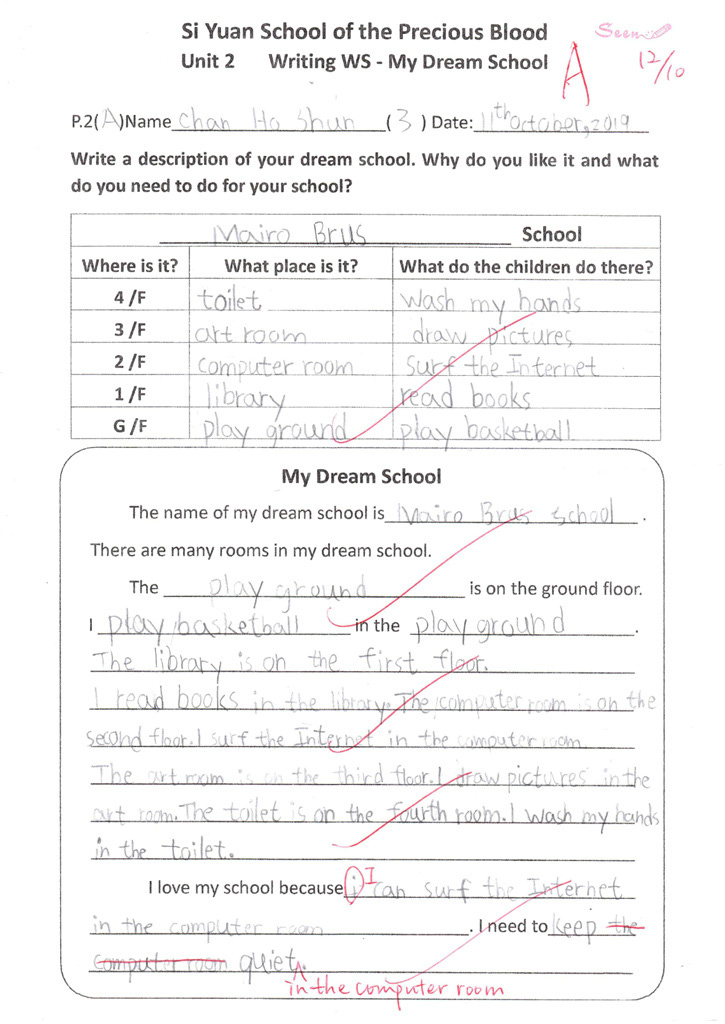 Si Yuan School of the Precious Blood
Unit 2 Writing WS - My Dream School
Seen
A
12/10
P.2(A)Name Chan Ho Shun (3) Date: 11th October, 2019
Write a description of your dream school. Why do you like it and what
do you need to do for your school?
Mairo Brus School
Where is it? What place is it? What do the children do there?
4 /F toilet wash my hands
3 /F art room draw pictures
2 /F computer room surf the Internet
1 /F library read books
G /F play ground play basketball
My Dream School
The name of my dream school is Mairo Brus school .
There are many rooms in my dream school.
The play ground is on the ground floor.
I play basketball in the play ground .
The library is on the first floor.
I read books in the library. The computer room is on the
second floor. I surf the Internet in the computer room
The art room is on the third floor. I draw pictures in the
art room. The toilet is on the fourth room. I wash my hands
in the toilet.
I love my school because i I can surf the Internet
in the computer room . I need to keep the
computer room quiet.
in the computer room